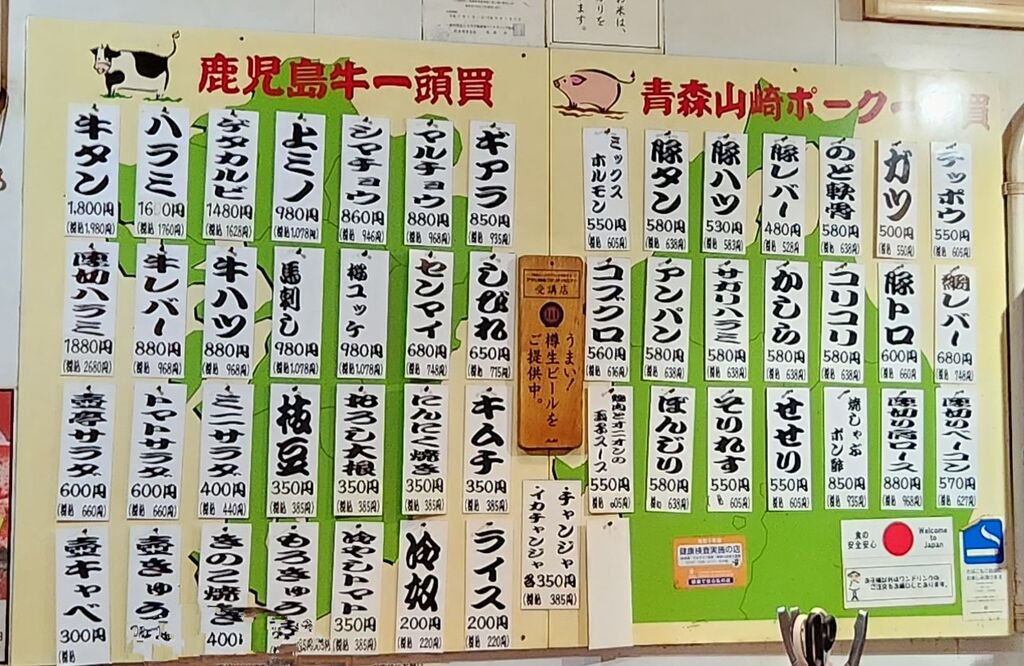 鹿児島牛一頭買
牛タン
1,800円
(税込1,980円)
ハラミ
(税込1760円)
ゲタカルビ
1480円
(税込1628円)
上ミノ
980円
(税込1,078円)
シマチョウ
860円
(税込946円)
マルチョウ
880円
(税込968円)
ギアラ
850円
(税込935円)
厚切ハラミ
1880円
(税込2680円)
牛レバー
880円
(税込968円)
牛ハツ
880円
(税込968円)
馬刺し
980円
(税込1,078円)
桜ユッケ
980円
(税込1,078円)
センマイ
680円
(税込748円)
しびれ
650円
(税込715円)
壺亭サラダ
600円
(税込660円)
トマトサラダ
600円
(税込660円)
ミニサラダ
400円
(税込440円)
枝豆
350円
(税込385円)
おろし大根
350円
(税込385円)
にんにく焼き
350円
(税込385円)
キムチ
350円
(税込385円)
壺キャベ
300円
壺きゅう
きのこ焼き
もろきゅう
冷やしトマト
350円
(税込385円)
冷奴
200円
(税込220円)
ライス
200円
(税込220円)
チャンジャ
イカチャンジャ
各350円
(税込385円)
受講店
うまい!
樽生ビールを
ご提供中。
青森山崎ポーク一頭買
ミックス
ホルモン
550円
(税込605円)
豚タン
580円
(税込638円)
豚ハツ
530円
(税込583円)
豚レバー
480円
(税込528円)
のど軟骨
580円
(税込638円)
ガツ
500円
(税込550円)
テッポウ
550円
(税込605円)
コブクロ
560円
(税込616円)
アンパン
580円
(税込638円)
サガリハラミ
580円
(税込638円)
かしら
580円
(税込638円)
コリコリ
580円
(税込638円)
豚トロ
600円
(税込660円)
レバー
680円
(税込748円)
焼肉とオニオンの
玉子スープ
550円
(税込605円)
ぼんじり
580円
(税込638円)
そりれす
550円
(税込605円)
せせり
550円
(税込605円)
焼しゃぶ
ポン酢
850円
(税込935円)
厚切り肩ロース
880円
(税込968円)
厚切りベーコン
570円
(税込627円)
健康検査実施の店
食の
安全安心
Welcome
to
Japan
お子様以外はワンドリンクの
ご注文をお願いしております。